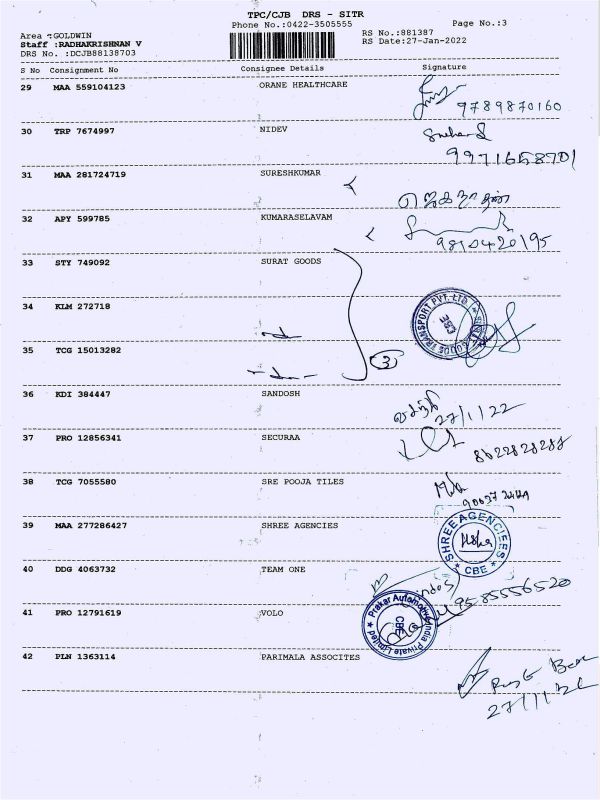 TPC/CJB DRS - SITR
Phone No.:0422-3505555
Page No.:3
Area :GOLDWIN
Staff :RADHAKRISHNAN V
DRS No. :DCJB88138703
RS No.:881387
RS Date:27-Jan-2022
S No Consignment No Consignee Details Signature
29 MAA 559104123 ORANE HEALTHCARE
9789870160
30 TRP 7674997 NIDEV
9971658701
31 MAA 281724719 SURESHKUMAR
32 APY 599785 KUMARASELAVAM
9810420195
33 STY 749092 SURAT GOODS
34 KLM 272718
GOODS TRANSPORT PVT. LTD.
353
35 TCG 15013282
3
36 KDI 384447 SANDOSH
27/1/22
37 PRO 12856341 SECURAA
8622828288
38 TCG 7055580 SRE POOJA TILES
39 MAA 277286427 SHREE AGENCIES
SHREE AGENCIEES
CBE
40 DDG 4063732 TEAM ONE
9585556520
41 PRO 12791619 VOLO
Prakar Automotive India Private Limited
CBE
42 PLN 1363114 PARIMALA ASSOCITES